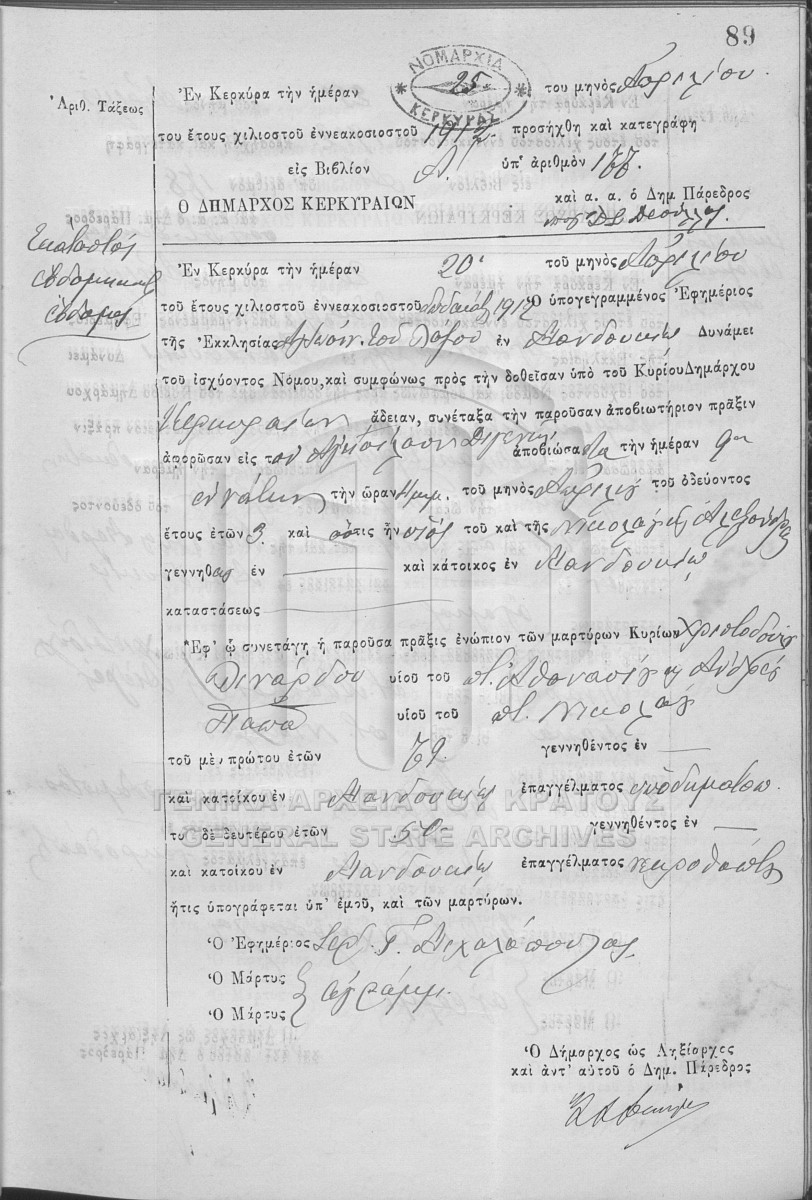 89
ΝΟΜΑΡΧΙΑ ΚΕΡΚΥΡΑΣ
Ἐν Κερκύρα τὴν ἡμέραν 25 του μηνὸς Ἀπριλίου
Ἀριθ. Τάξεως
του ἔτους χιλιοστοῦ ἐννεακοσιοστοῦ 1912 προσήχθη καὶ κατεγράφη
εἰς Βιβλίον Α' ὑπ' ἀριθμὸν 177.
Ο ΔΗΜΑΡΧΟΣ ΚΕΡΚΥΡΑΙΩΝ καὶ α. α. ὁ Δημ Πάρεδρος
Ἑκατοστὸς
ἑβδομηκοστὸς
ἕβδομος
Ἐν Κερκύρα τὴν ἡμέραν 20' τοῦ μηνὸς Ἀπριλίου
τοῦ ἔτους χιλιοστοῦ ἐννεακοσιοστοῦ δωδεκάτ 1912 Ὁ ὑπογεγραμμένος Ἐφημέριος
τῆς Ἐκκλησίας τοῦ Λαζάρου ἐν Μανδουκίῳ Δυνάμει
τοῦ ἰσχύοντος Νόμου, καὶ συμφώνως πρὸς τὴν δοθεῖσαν ὑπὸ τοῦ Κυρίου Δημάρχου
Κερκυραίων ἄδειαν, συνέταξα τὴν παροῦσαν ἀποβιωτήριον πρᾶξιν
ἀφορῶσαν εἰς τον ἀποβιώσαντα τὴν ἡμέραν 9ην
ἐνάτην τὴν ὥραν τοῦ μηνὸς Ἀπριλίου τοῦ ὁδεύοντος
ἔτους ἐτῶν 3 καὶ ὅστις ἦν υἱὸς τοῦ καὶ τῆς Νικολάου Ἀλεξάνδρας
γεννηθεὶς ἐν — καὶ κάτοικος ἐν Μανδουκίῳ
καταστάσεως —
Ἐφ' ᾧ συνετάγη ἡ παροῦσα πρᾶξις ἐνώπιον τῶν μαρτύρων Κυρίων Χριστοδούλου
Λινάρδου υἱοῦ τοῦ ποτ. Ἀθανασίου Ἀνδρέα
Παπᾶ υἱοῦ τοῦ ποτ. Νικολάου
τοῦ μὲν πρώτου ἐτῶν 79 γεννηθέντος ἐν —
καὶ κατοίκου ἐν Μανδουκίῳ ἐπαγγέλματος ὑποδηματοπ.
τοῦ δὲ δευτέρου ἐτῶν 50 γεννηθέντος ἐν —
καὶ κατοίκου ἐν Μανδουκίῳ ἐπαγγέλματος νεκροθάπτης
ἥτις ὑπογράφεται ὑπ' ἐμοῦ, καὶ τῶν μαρτύρων.
Ὁ Ἐφημέριος Ἱερ. Γ. Μιχαλόπουλος
Ὁ Μάρτυς
ἀγράμμ.
Ὁ Μάρτυς
Ὁ Δήμαρχος ὡς Ληξίαρχος
καὶ ἀντ' αὐτοῦ ὁ Δημ. Πάρεδρος
ΓΕΝΙΚΑ ΑΡΧΕΙΑ ΤΟΥ ΚΡΑΤΟΥΣ
GENERAL STATE ARCHIVES